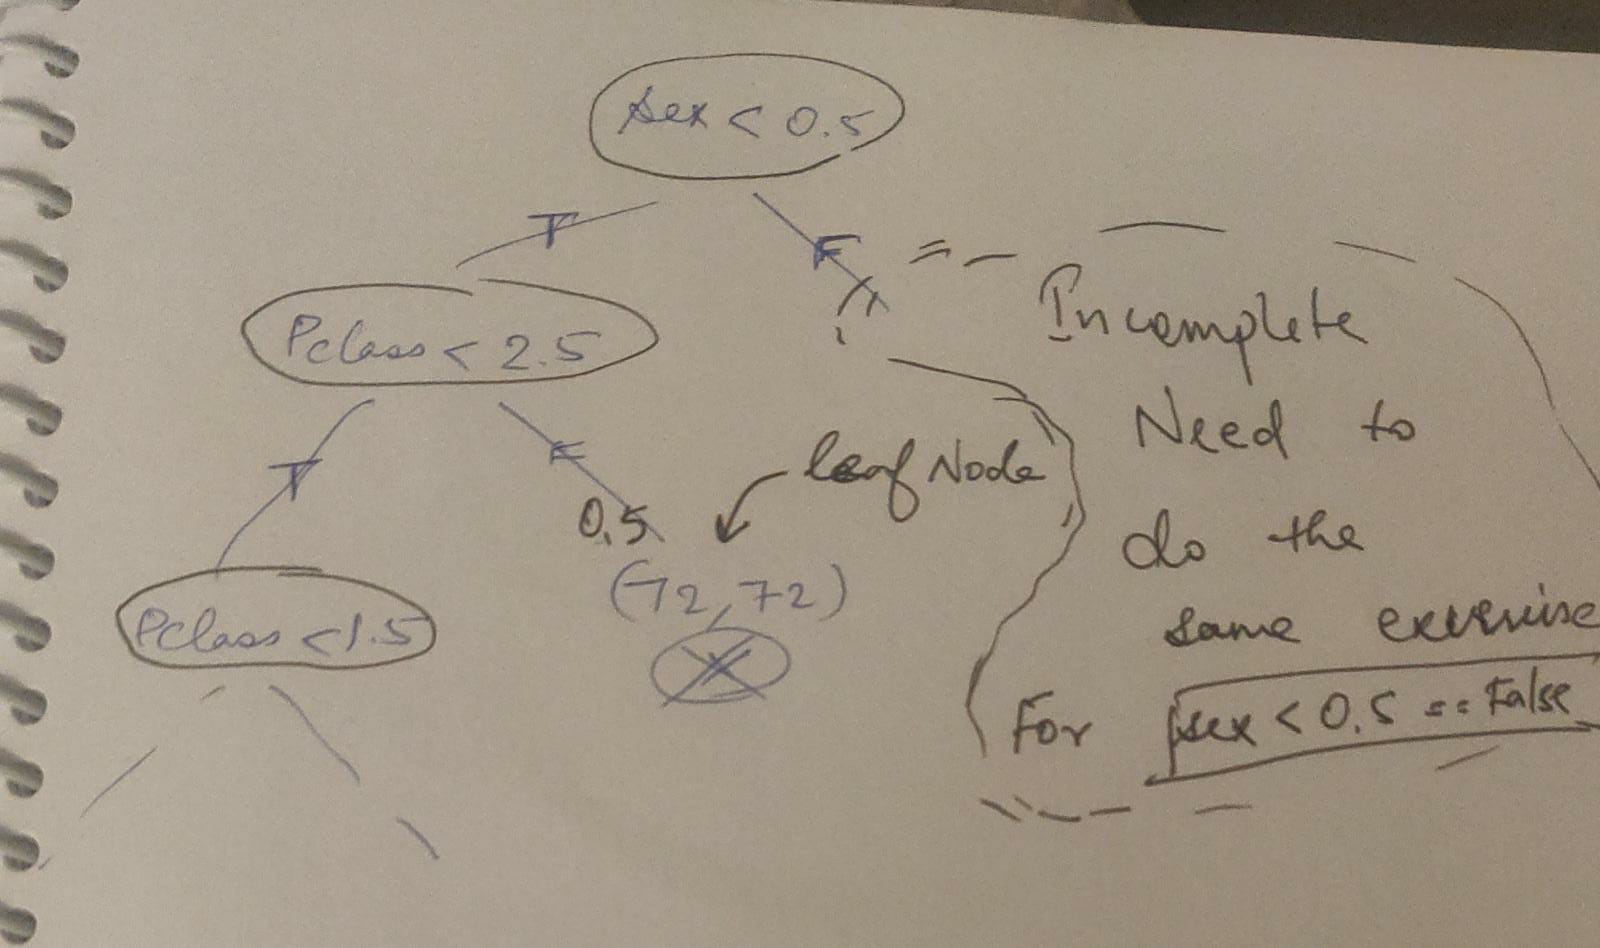 Sex < 0.5
T
F
Pclass < 2.5
T
F
0.5
(72, 72)
leaf Node
Pclass <1.5
Incomplete
Need to
do the
same exercise
For sex < 0.5 == False